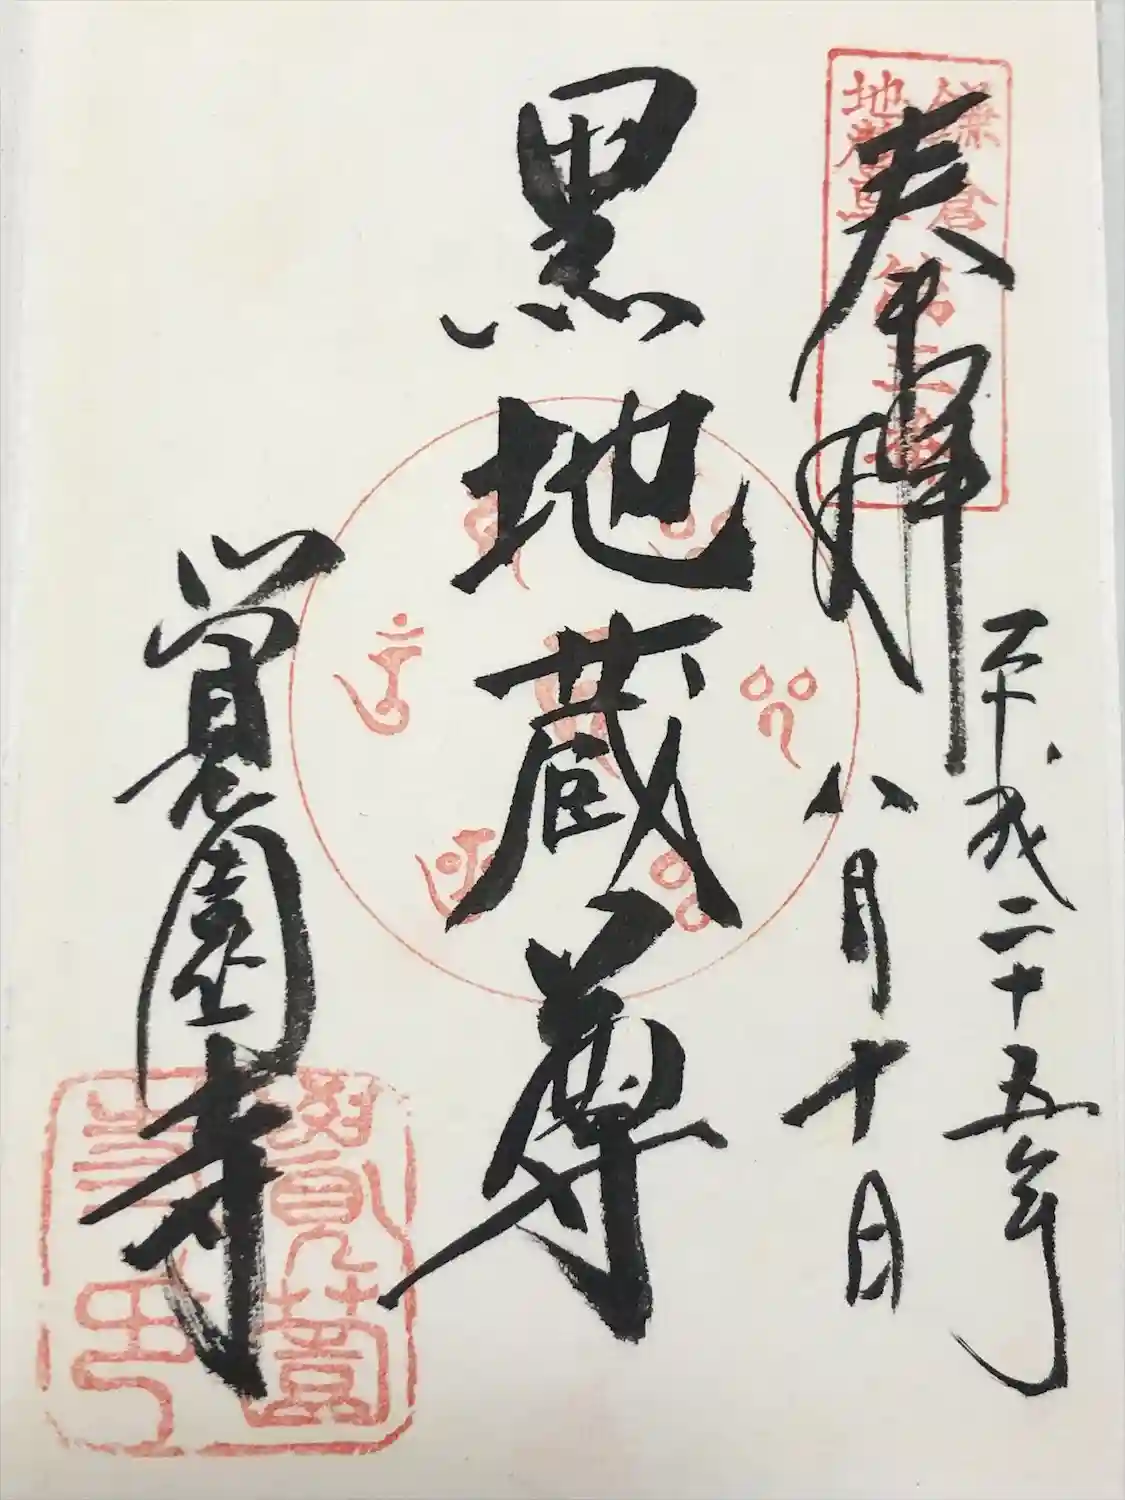 奉拝
鎌倉
地蔵尊
第三番
平成二十五年
八月十日
黒地蔵尊
覚園寺
覺園
寺印